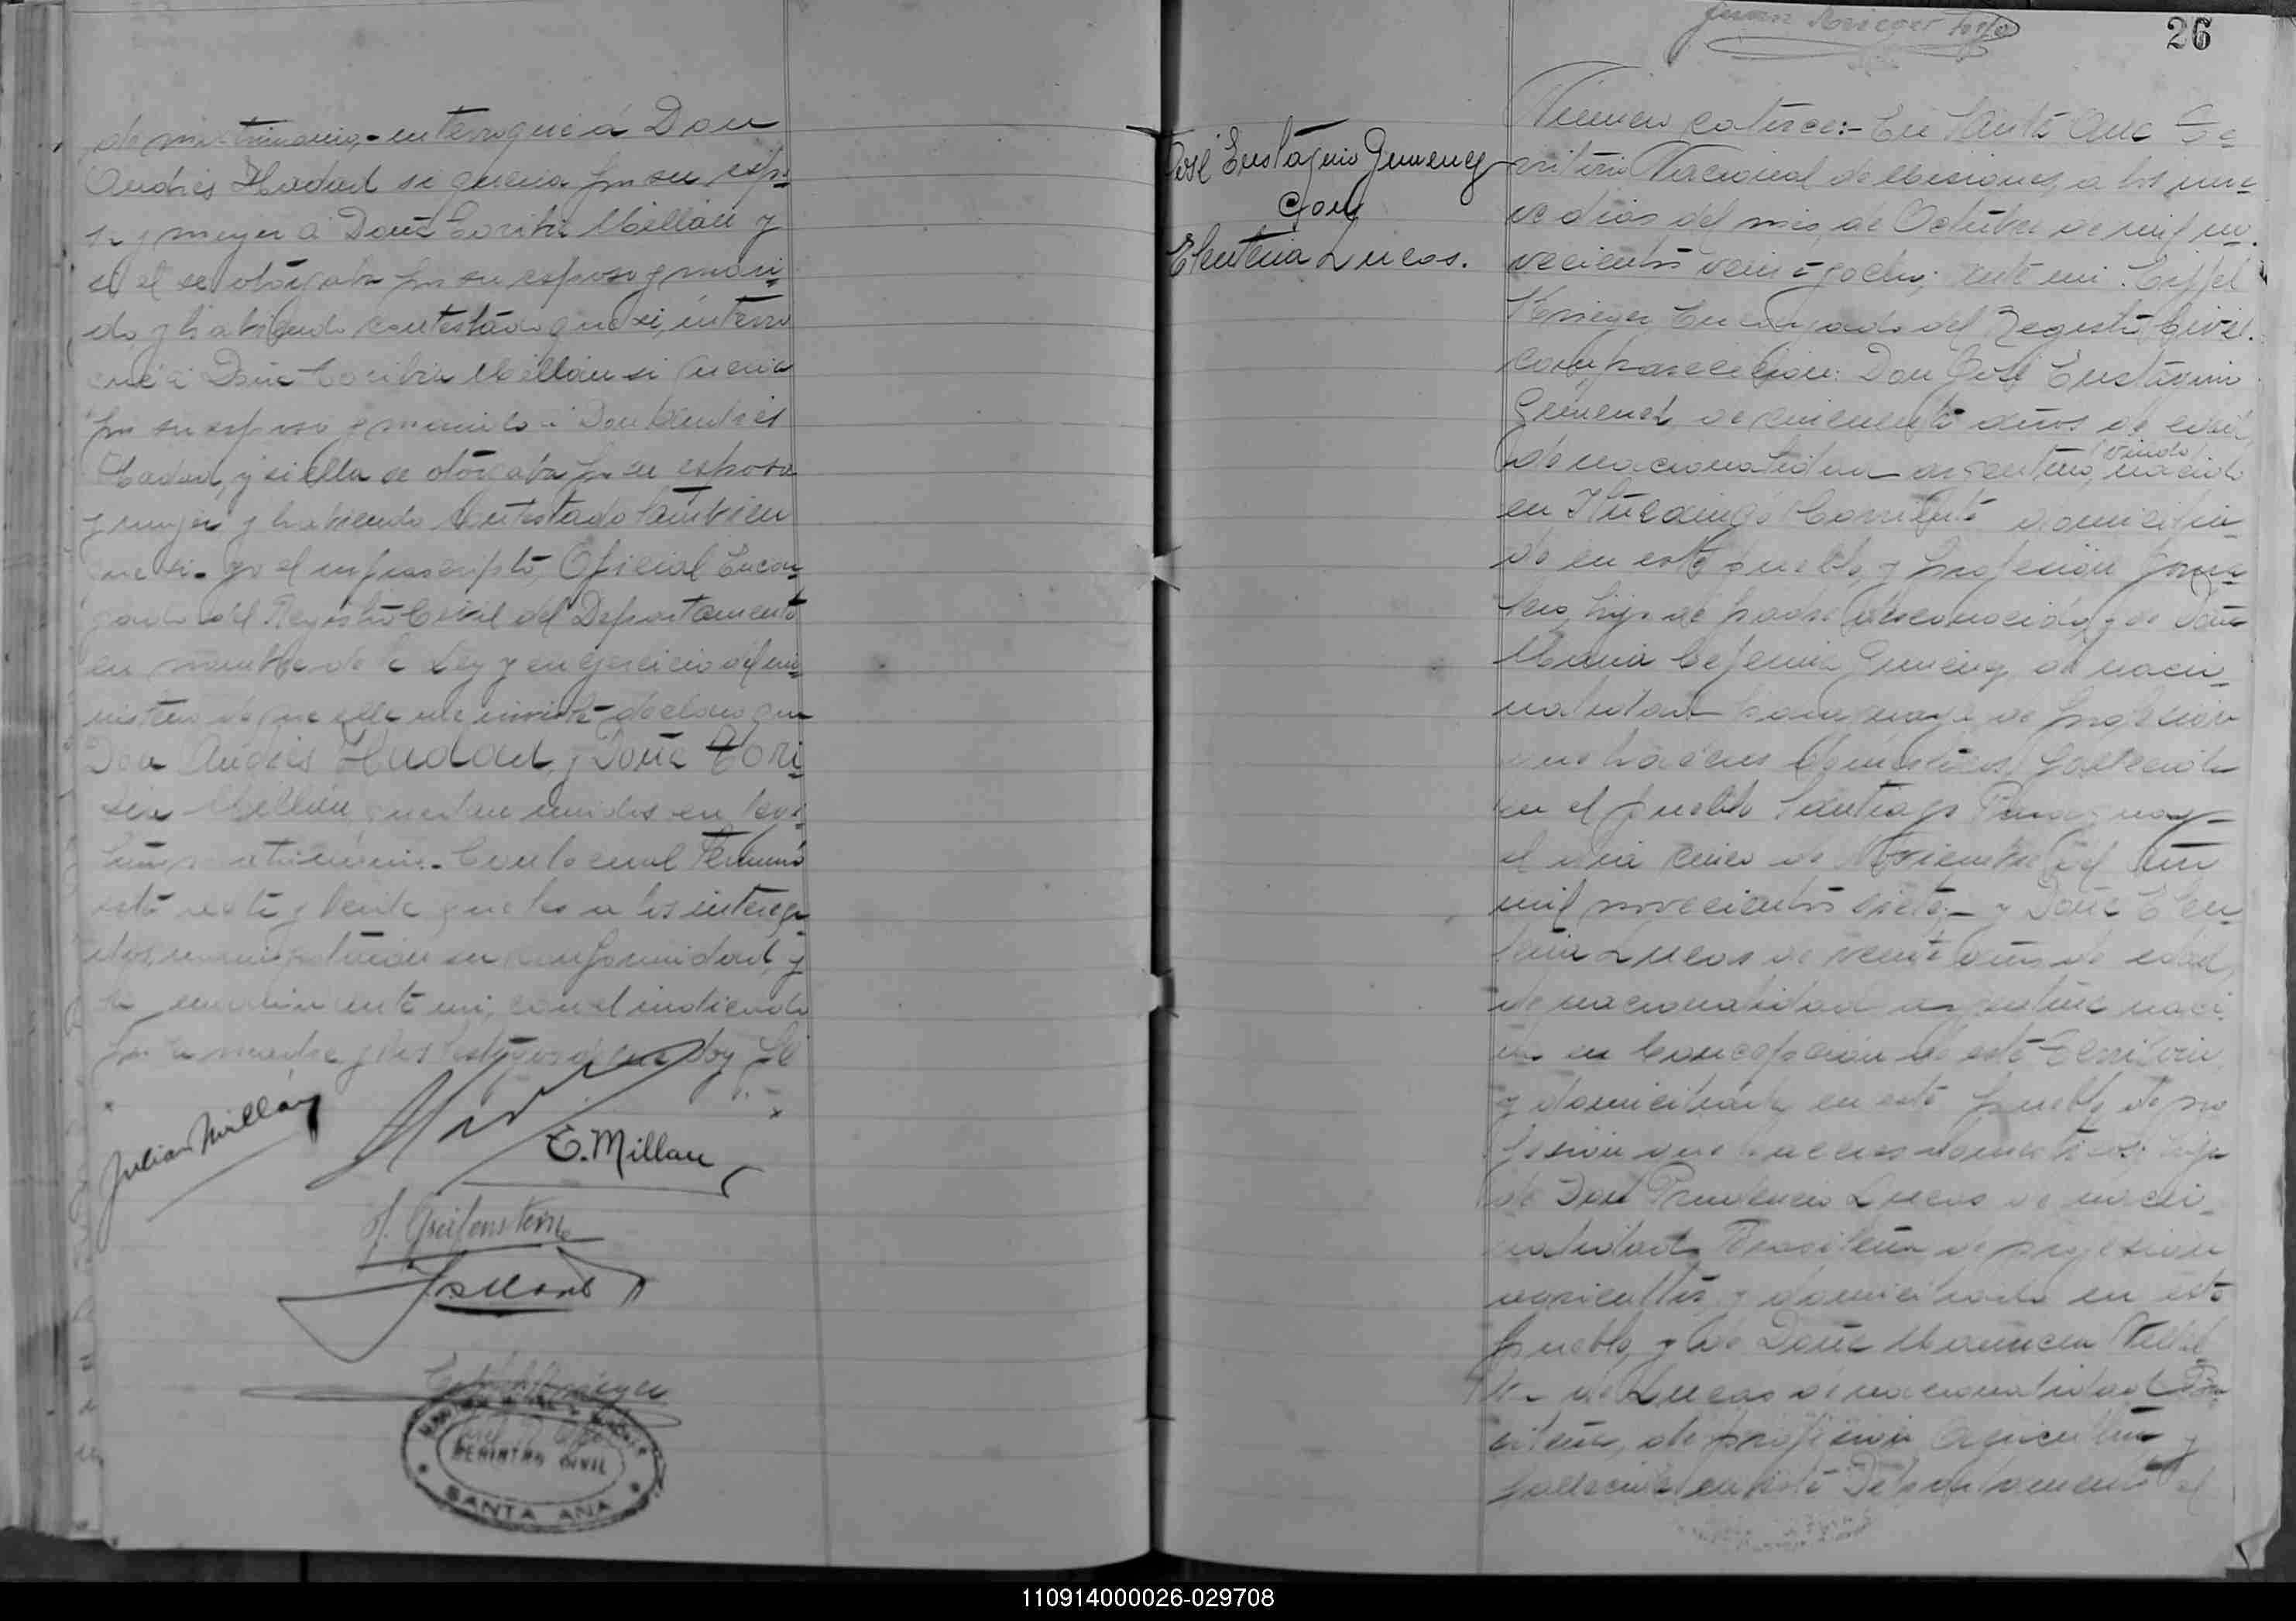 de matrimonio,- interrogué á Don
Andrés Hadad si queria por su espo-
sa y muger á Doña Corina Millán y
si el se otorgaba por su esposo y mari-
do y habiendo contestado que si, interro
gué á Doña Millán si queria
por su esposo y marido á Don Andrés
Hadad, y si ella se otorgaba por su esposa
y muger y habiendo contestado tambien
que si- yo el infrascripto, Oficial Encar-
gado del Registro Civil del Departamento
en nombre de la Ley y en ejercicio del mi-
nisterio de que ella me inviste declaro que
Don Andrés Hadad, y Doña
Millán, quedan unidos en legi-
timo matrimonio.- Con lo cual terminó
esta acta y leida que les a los interesa-
dos, manifestaron su conformidad, y
la mi, con el indicado
por la madre y los testigos de que doy fé
Julian Millán
C. Millan
Registro Civil
SANTA ANA
26
José Eustaquio Gimenez
Con
Eleuteria Lucas.
Número catorce:- En Santa Ana Te-
rritorio Nacional de Misiones, a los nue-
ve dias del mes de Octubre de mil no-
vecientos veinte y ocho; ante mi
Krieger Encargado del Registro Civil.
comparecieron: Don José Eustaquio
Gimenez de cincuenta años de edad,
viudo
de nacionalidad argentino, nacido
en Ituzaingó Corrientes domicilia-
do en este pueblo y profesion jorna-
lero, hijo de padre desconocido, y de Doña
Maria Ceferina Gimenez, de nacio-
nalidad paraguaya de profesion
quehaceres domesticos, fallecida
en el pueblo Santiago Paraguay-
el dia cinco de del año
mil novecientos siete;- y Doña Eleu-
teria Lucas de veinte años de edad,
de nacionalidad argentina naci-
da en Concepción de este Territorio,
y domiciliada en este pueblo de pro
fesion quehaceres domesticos: hija
de Don Prudencio Lucas de nacio-
nalidad Brasilera de profesion
agricultor y domiciliado en este
pueblo, y de Doña
de Lucas de nacionalidad Bra-
silera, de profesion agricultora y
fallecida en este Departamento el
110914000026-029708